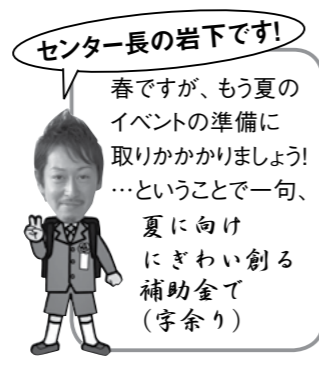 センター長の岩下です!
春ですが、もう夏の
イベントの準備に
取りかかかりましょう!
…ということで一句、
夏に向け
にぎわい創る
補助金で
(字余り)